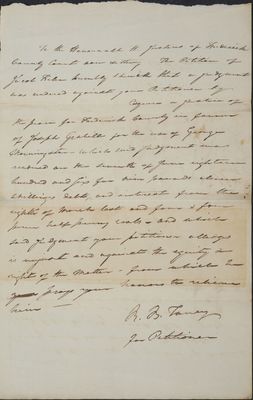 To the Honorable the Justices of Frederick
County Court now sitting The Petition of
Jacob humbly sheweth that a judgment
was rendered against your Petitioner by
Esquire a justice of
the peace for Frederick County in favour
of Joseph for the use of George
which said judgment was
rendered on the seventh of June eighteen
hundred and six for nine pounds eleven
shillings debt, and interest from the
eighth of March last and four & four
pence half penny costs and which
said Judgment your petitioner alleges
is unjust and against the equity and
right of the Matter - from which he
prays your honors to relieve
him
R. B. Taney
for Petitioner